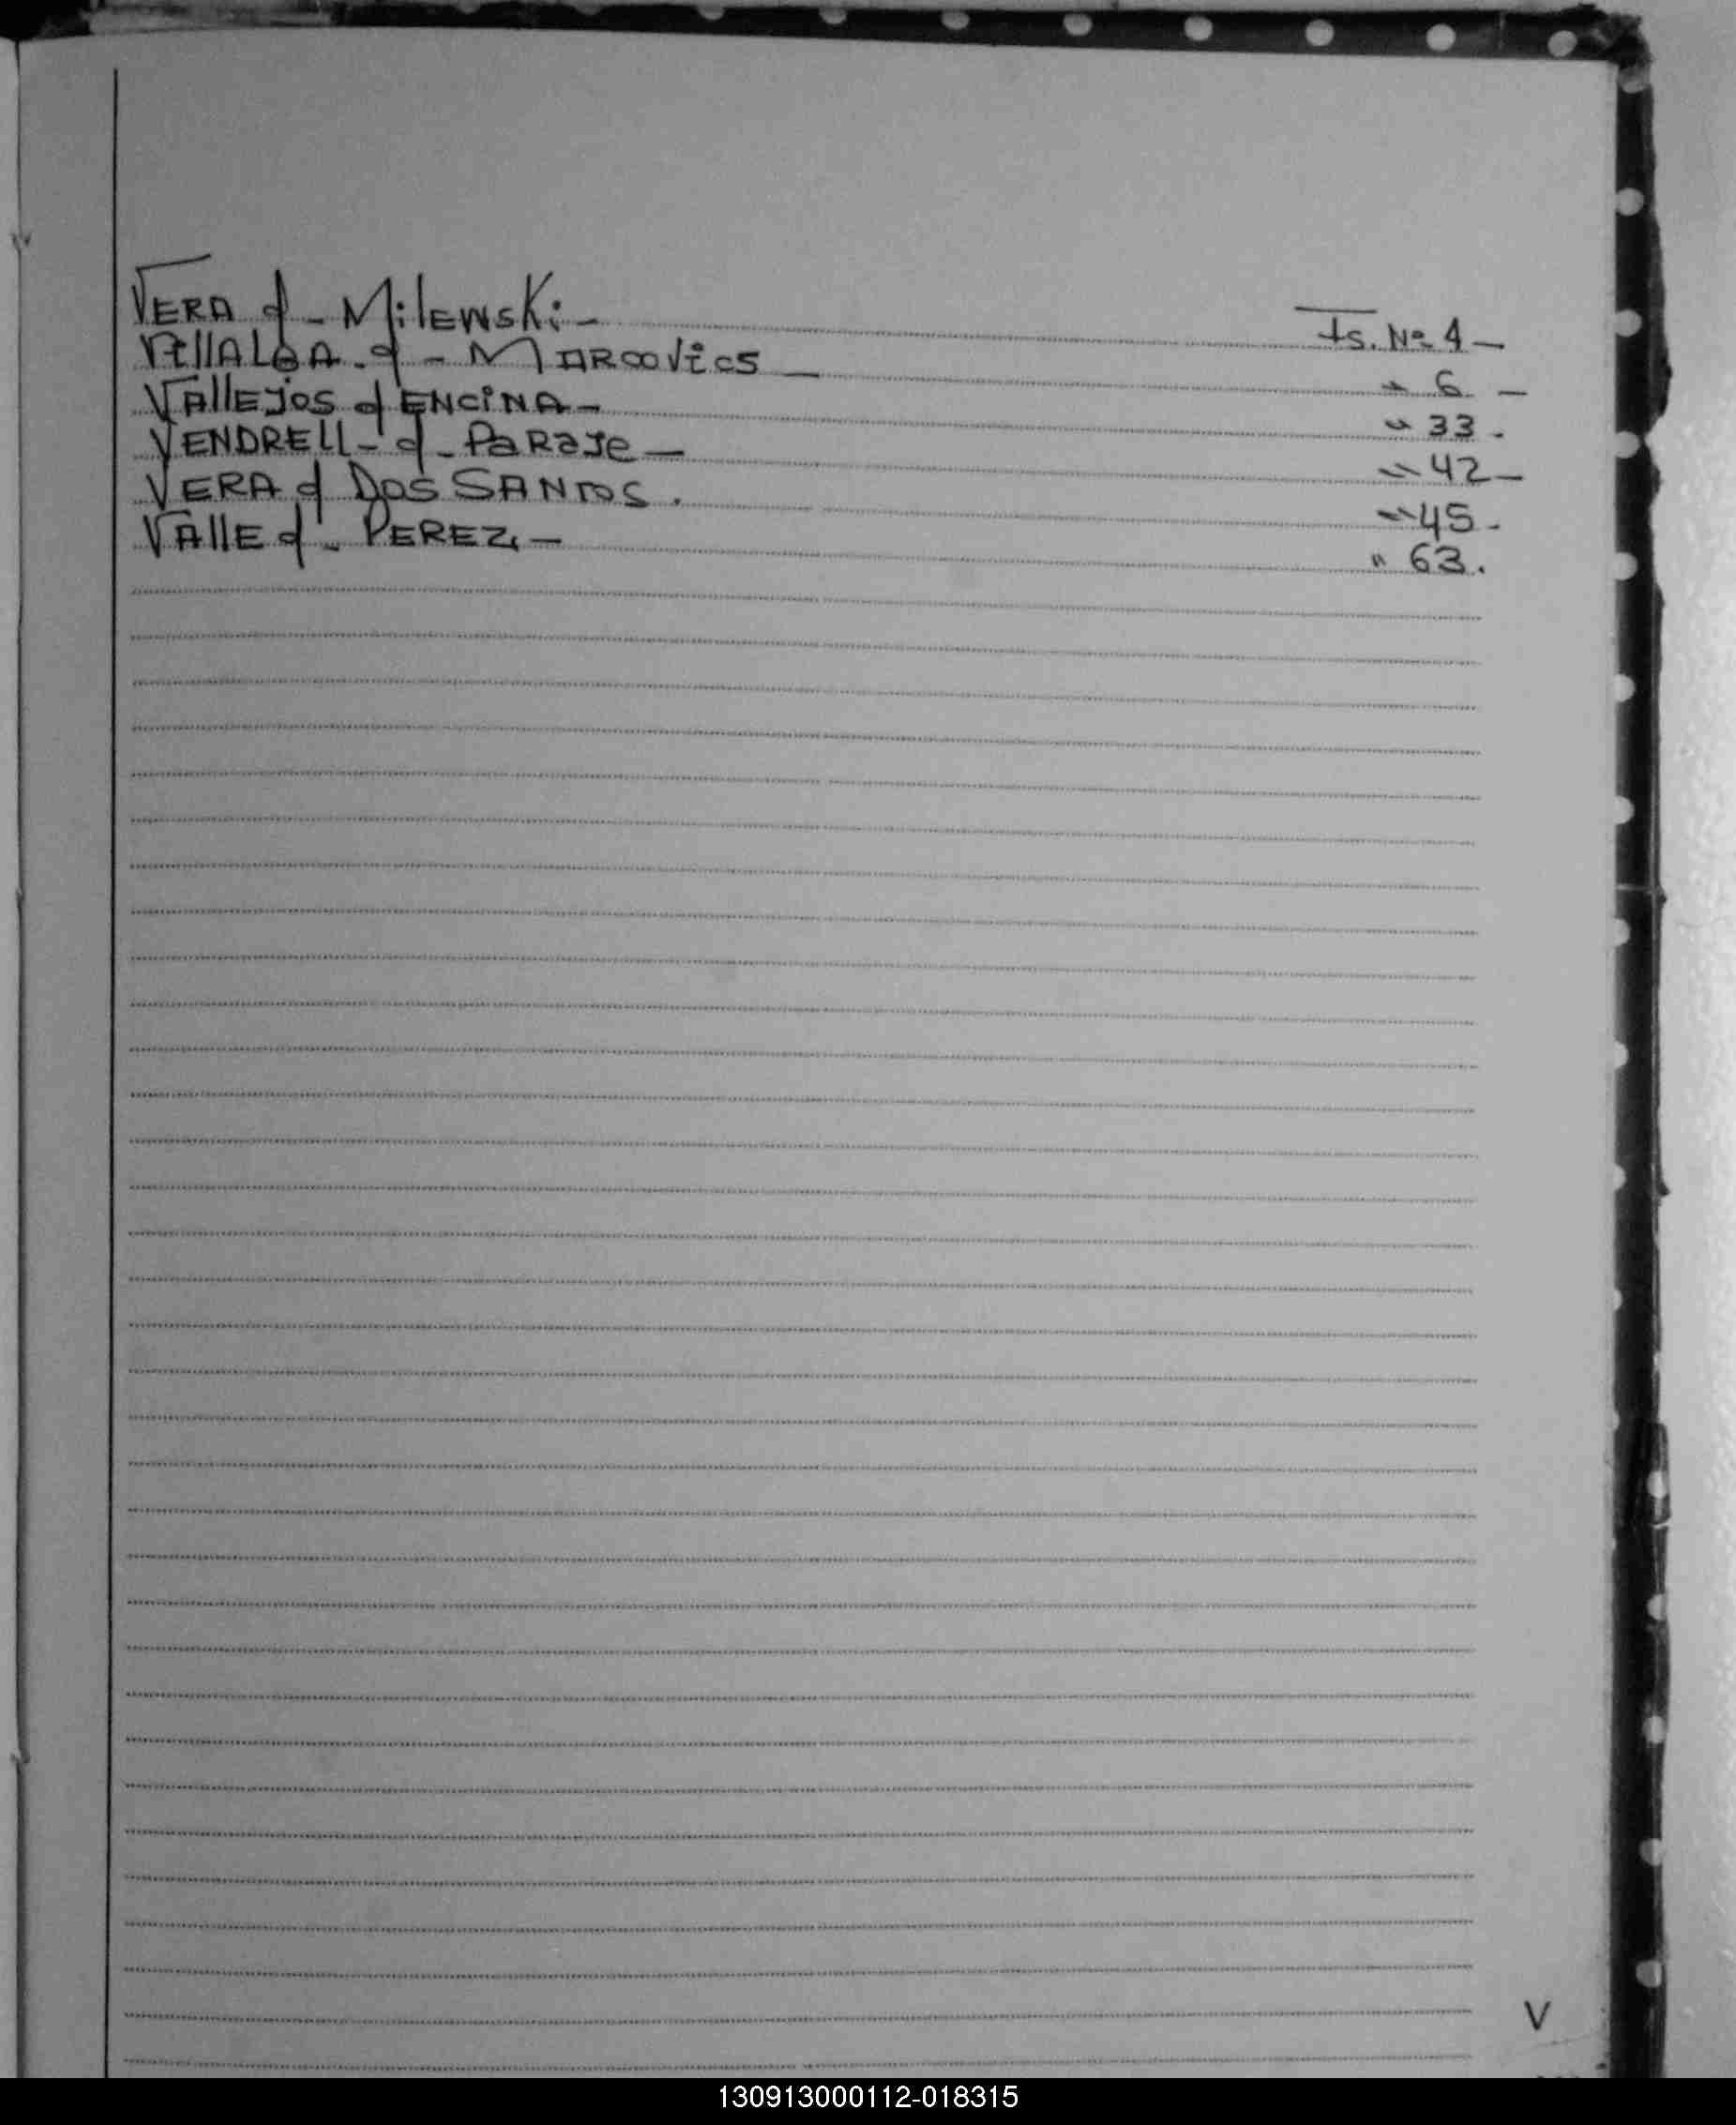 VERA d - MilEWSKi - Fs. Nº 4 -
VillALBA - d - MARCOVics - " 6 -
VAllEJOS d ENCiNA - " 33 -
VENDRELL - d - PaRaJe - " 42 -
VERA d DOS SANTOS . " 45 -
VAllE d - PEREZ, - " 63 .
V
130913000112-018315